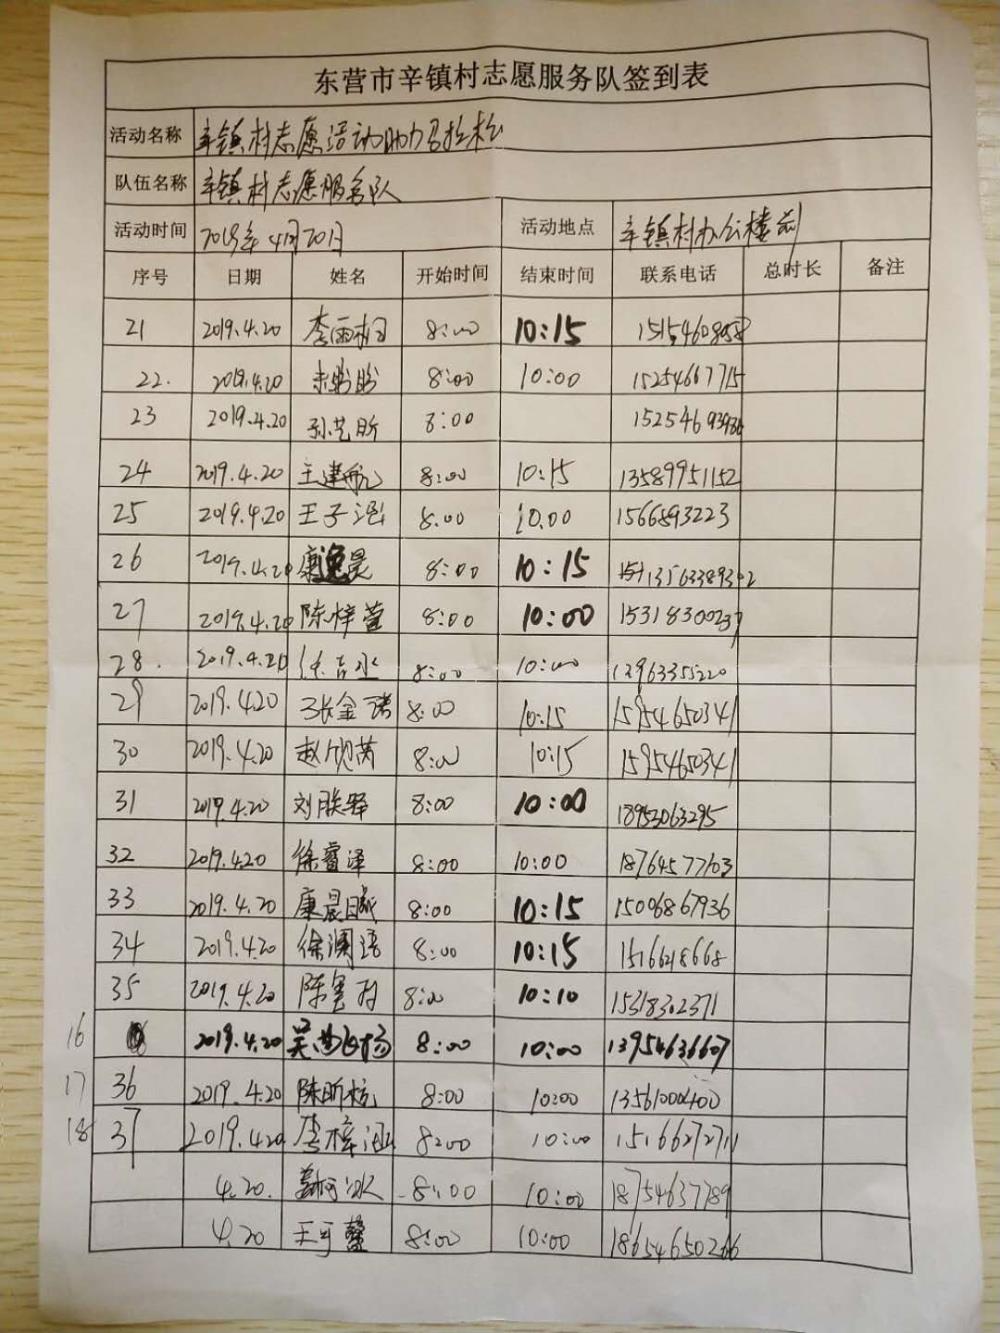 东营市辛镇村志愿服务队签到表
活动名称 辛镇村志愿活动助力马拉松
队伍名称 辛镇村志愿服务队
活动时间 2019年4月20日 活动地点 辛镇村办公楼前
序号 日期 姓名 开始时间 结束时间 联系电话 总时长 备注
21 2019.4.20 李雨桐 8:00 10:15
22. 2019.4.20 8:00 10:00 15254667715
23 2019.4.20 孙艺昕 8:00
24 2019.4.20 王建航 8:00 10:15 13589951152
25 2019.4.20 王子涵 8.00 10.00 1566893223
26 2019.4.20 康逸晨 8:00 10:15
27 2019.4.20 陈梓萱 8:00 10:00 15318300237
28. 2019.4.20 8:00 10:00 13963355220
29 2019.4.20 8:00 10:15 15954650341
30 2019.4.20 赵欣芮 8:00 10:15 15954650341
31 2019.4.20 8:00 10:00 18953063295
32 2019.4.20 徐睿泽 8:00 10:00 18764577703
33 2019.4.20 康晨曦 8:00 10:15 15006867936
34 2019.4.20 徐澜语 8:00 10:15 1516618668
35 2019.4.20 8:00 10:10 15318302371
16 2019.4.20 8:00 10:00 13954636607
17 36 2019.4.20 陈昕杭 8:00 10:00 13561000400
18 37 2019.4.20 李梓涵 8:00 10:00 15166272711
4.20. 8:00 10:00 18754637789
4.20 王可馨 8:00 10:00 18654650266